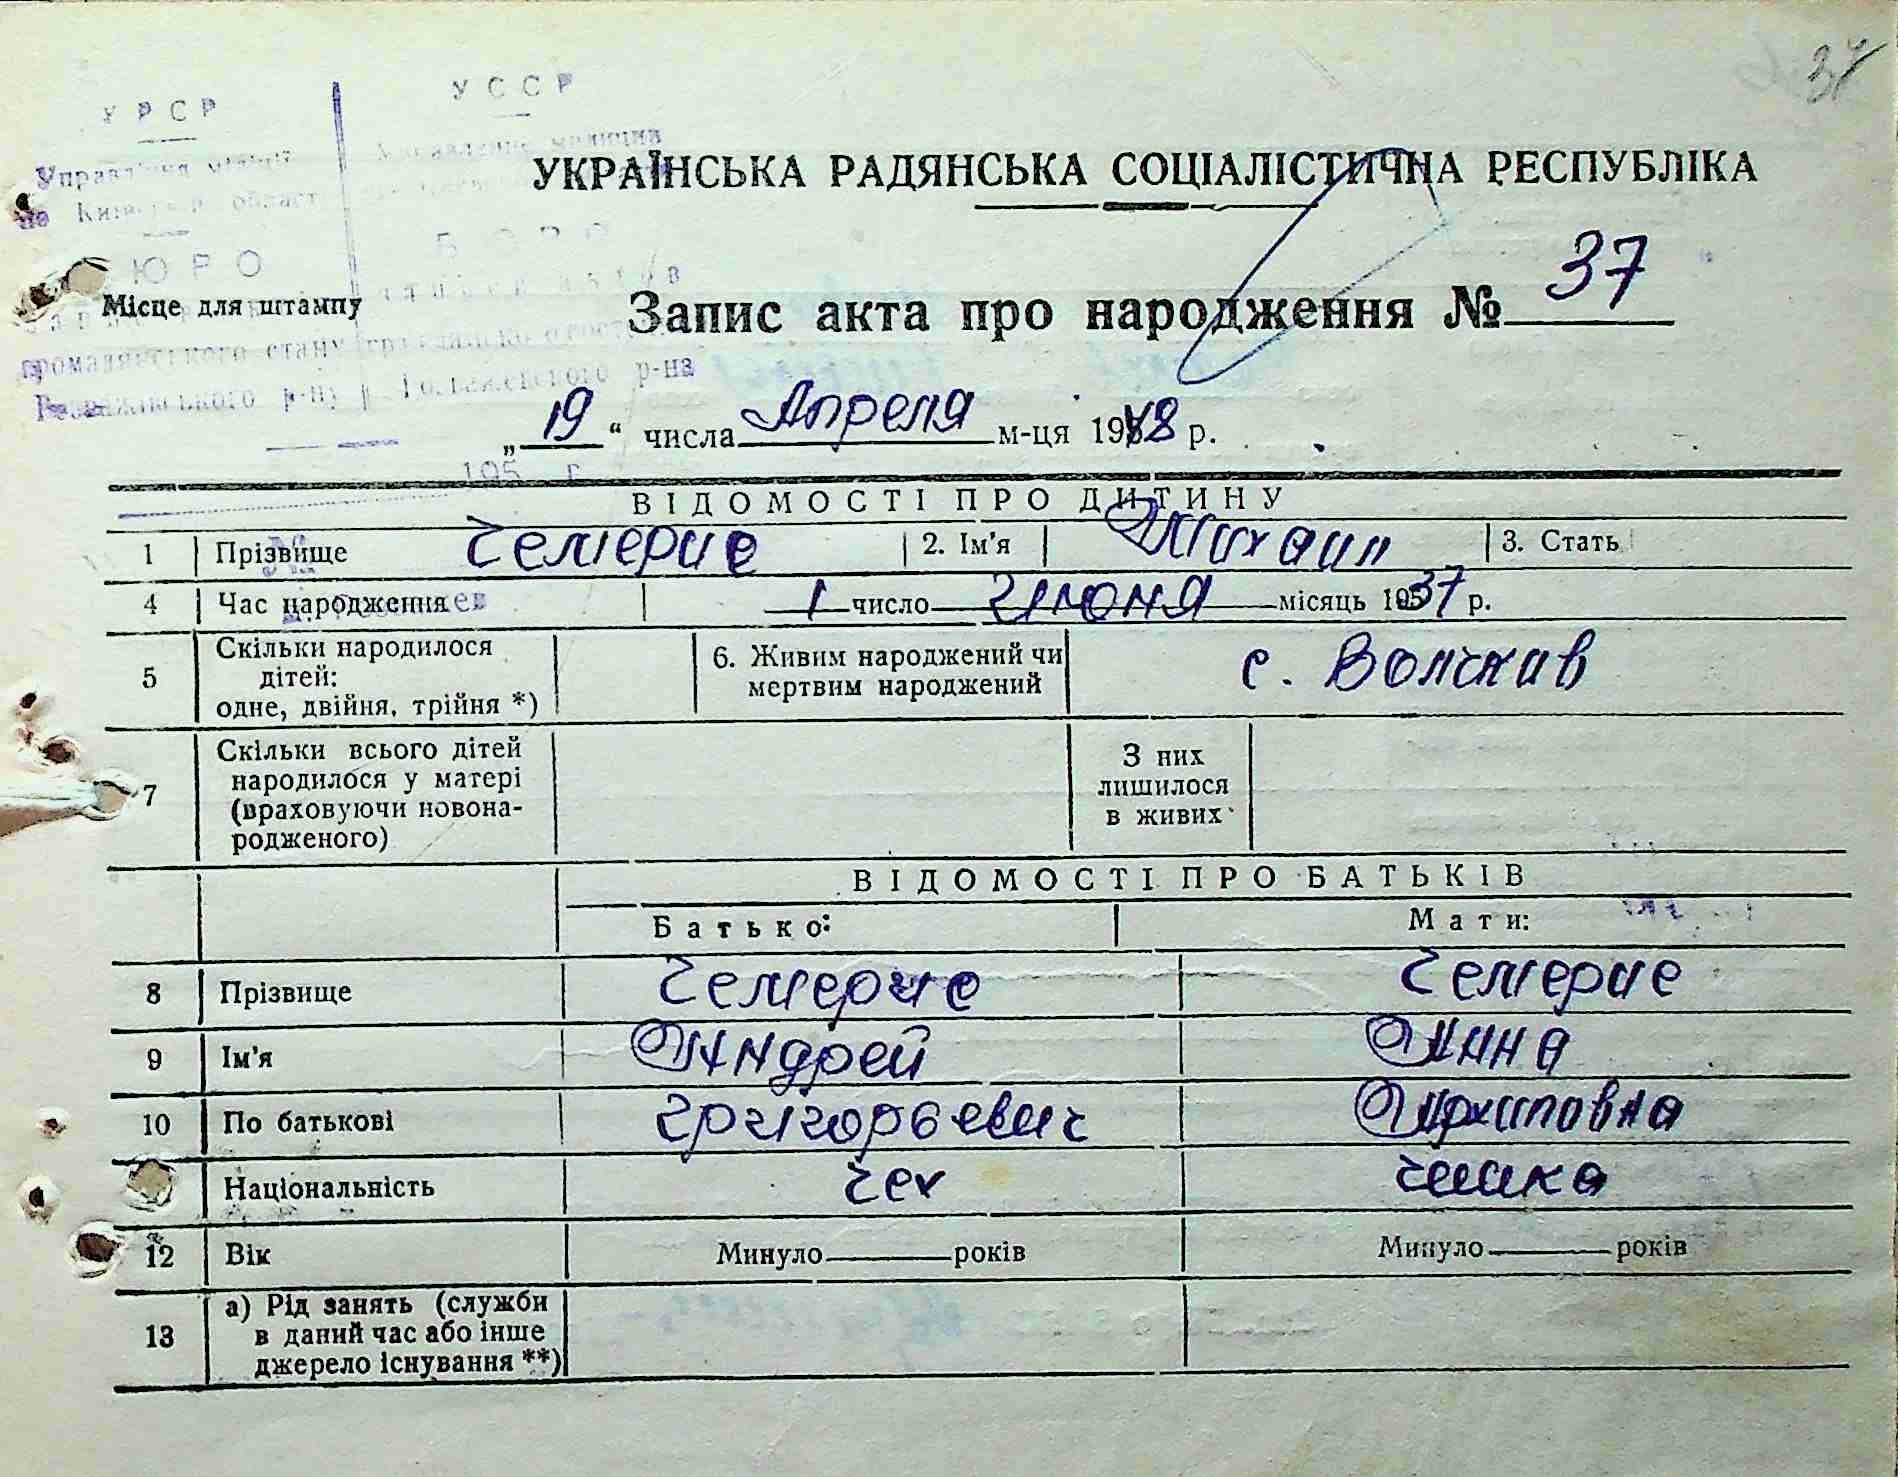 37
УРСР
УССР
Управління міліції
по Київській області
УКРАЇНСЬКА РАДЯНСЬКА СОЦІАЛІСТИЧНА РЕСПУБЛІКА
БЮРО
ЮРО
Місце для штампу
Запис акта про народження № 37
громадянського стану
р-ну
р-на
„ 19 “ числа Апреля м-ця 1948 р.
195 г.
ВІДОМОСТІ ПРО ДИТИНУ
1 Прізвище Чемерис 2. Ім'я Михаил 3. Стать
4 Час народження 1 число Июня місяць 1937 р.
5 Скільки народилося дітей: одне, двійня, трійня *) 6. Живим народжений чи мертвим народжений с.
7 Скільки всього дітей народилося у матері (враховуючи новонародженого) З них лишилося в живих
ВІДОМОСТІ ПРО БАТЬКІВ
Батько: Мати:
8 Прізвище Чемерис Чемерис
9 Ім'я Андрей Анна
10 По батькові Григорьевич Архиповна
Національність Чех Чешка
12 Вік Минуло років Минуло років
13 а) Рід занять (служби в даний час або інше джерело існування **)